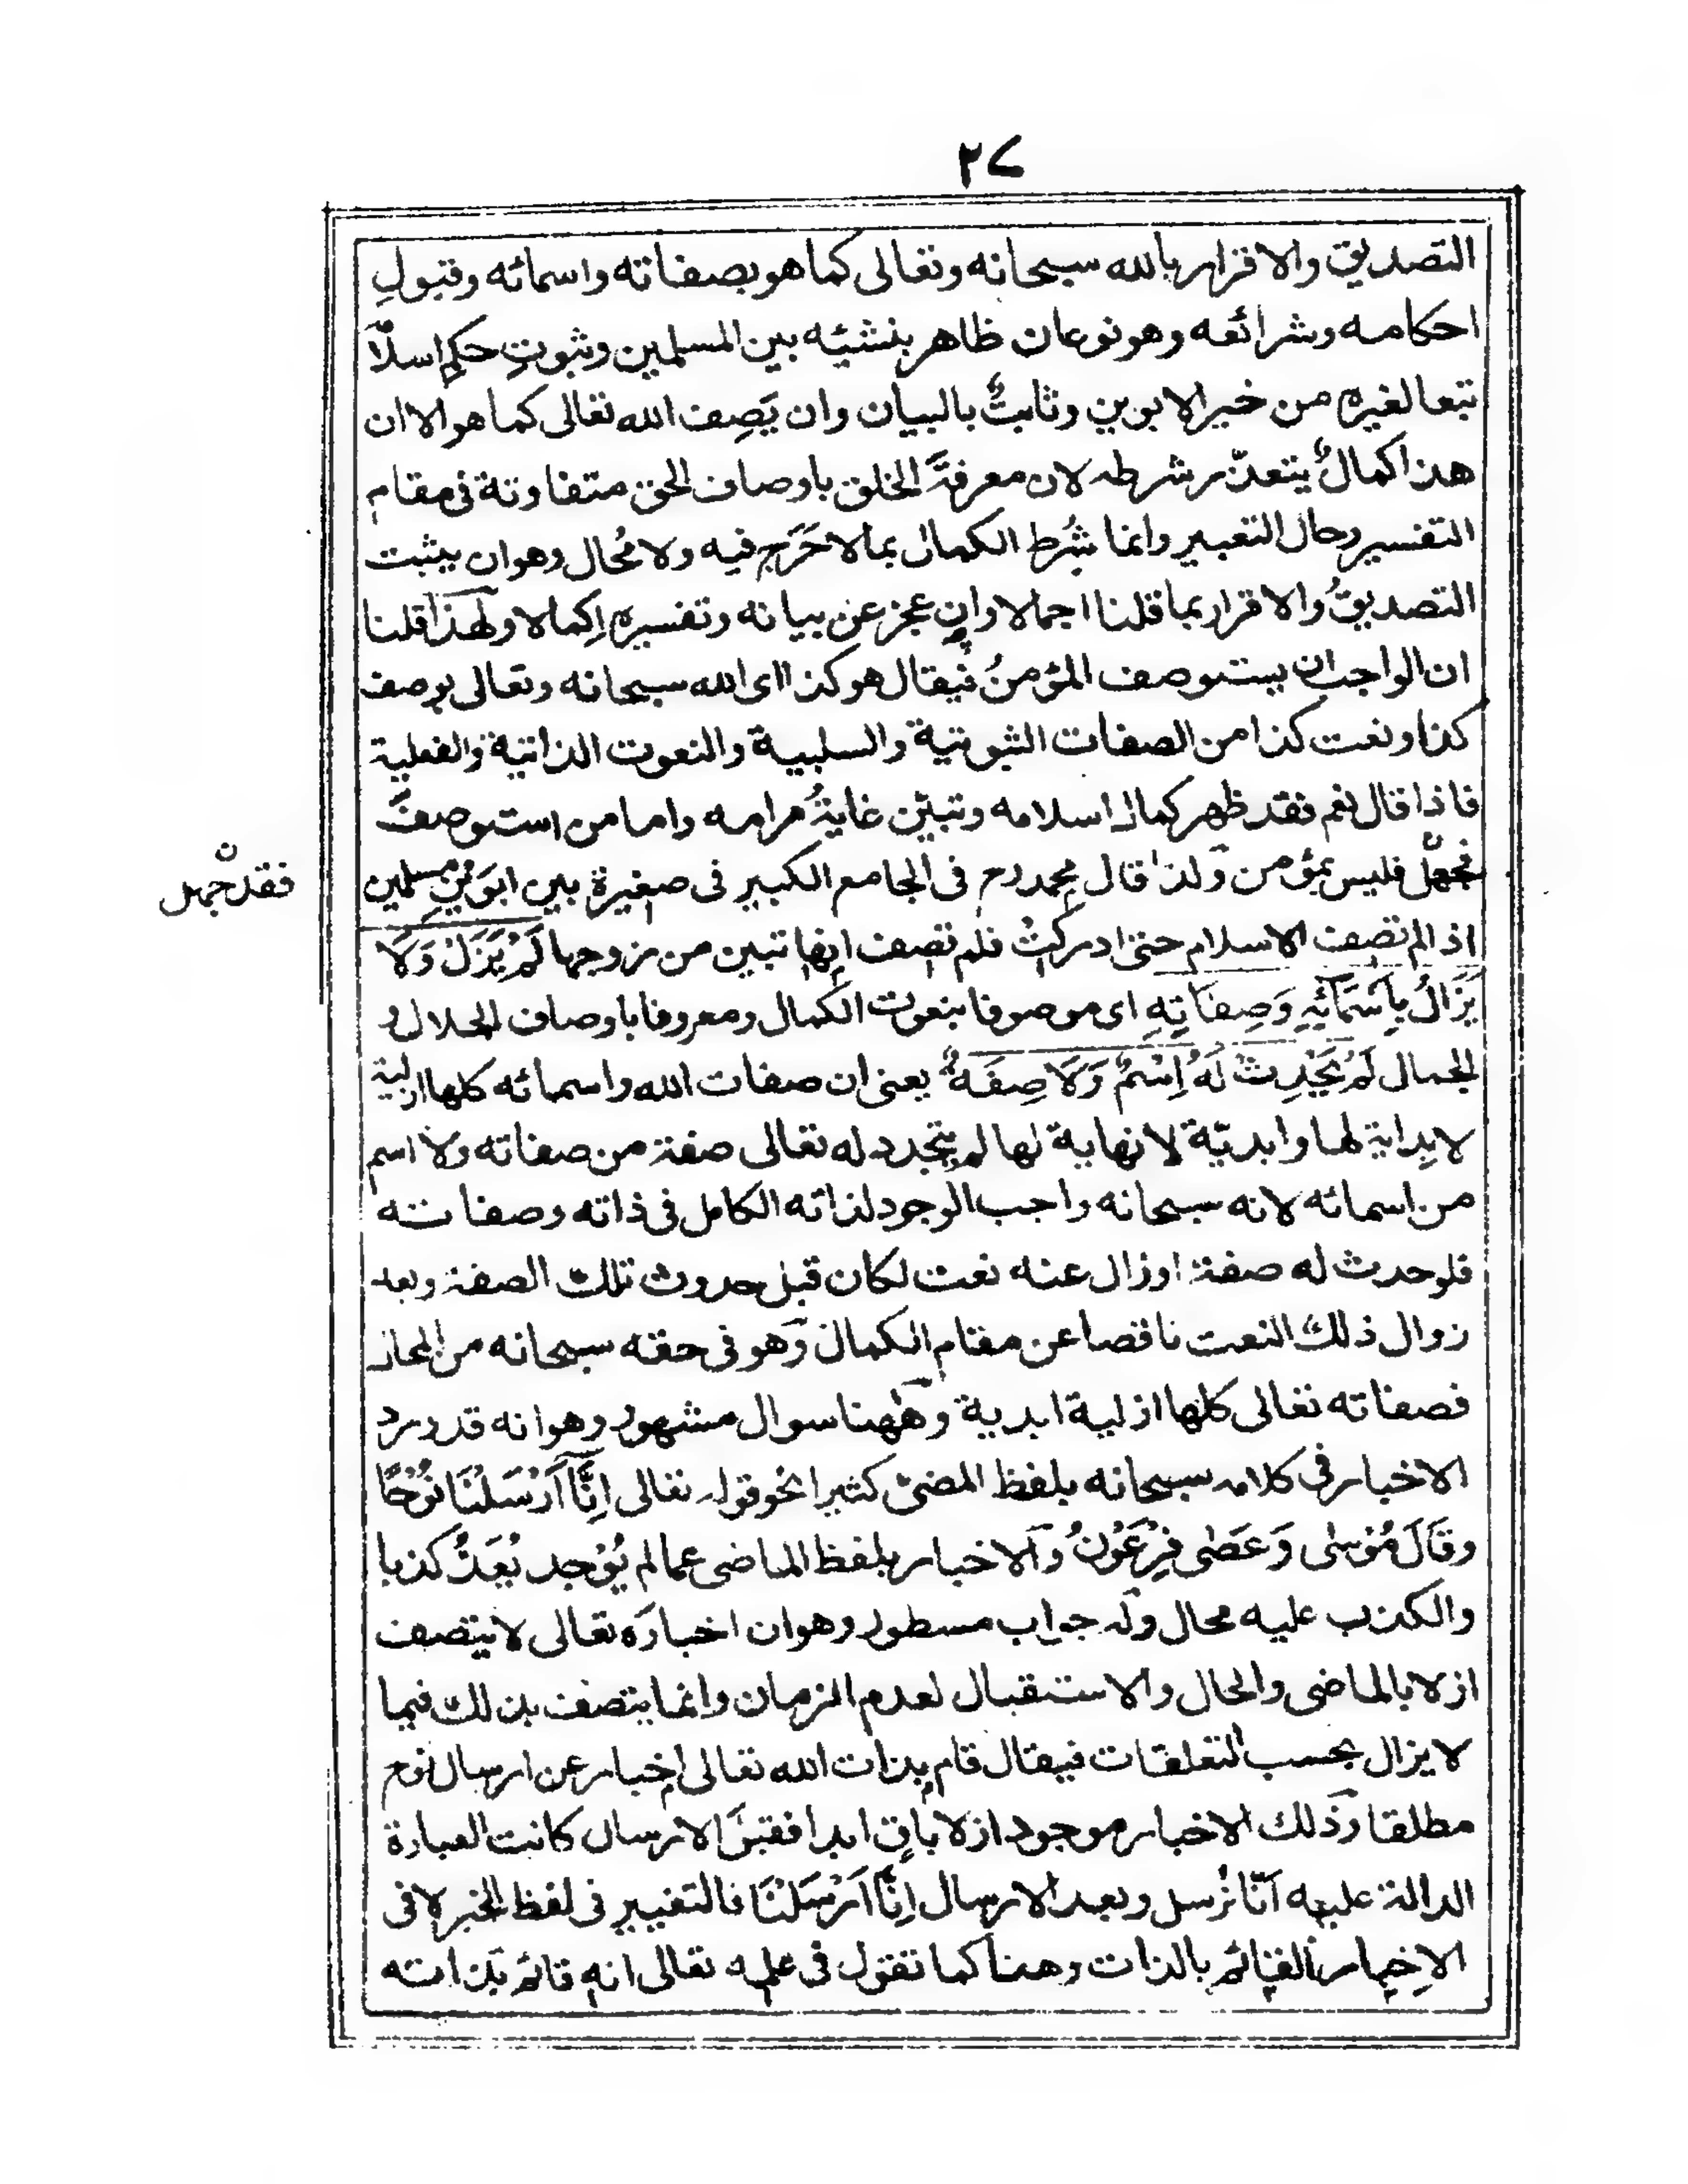 ٢٧
التصديق والاقرار بالله سبحانه وتعالى كما هو بصفاته واسمائه وقبولِ
احكامه وشرائعه وهو نوعان ظاهر بنشئيه بين المسلمين وثبوتِ حكمِ اسلامٍ
تبعا لغيره من خير الابوين وثابتٌ بالبيان وان يَصِف الله تعالى كما هو الا ان
هذا كمالٌ يتعذّر شرطه لان معرفةَ الخلق باوصاف الحق متفاوتة فى مقام
التفسير وحال التعبير وانما شُرط الكمال بما لا حَرَج فيه ولا مُحال وهو ان يثبت
التصديقُ والاقرار بما قلنا اجمالا وان عجز عن بيانه وتفسيره اِكمالا ولهذا قلنا
ان الواجب ان يستوصف المؤمنُ فيقال هو كذا اى الله سبحانه وتعالى بوصف
كذا ونعت كذا من الصفات الثبوتية والسلبية والنعوت الذاتية والفعلية
فاذا قال نعم فقد ظهر كمال اسلامه وتبيّن غايةُ مرامه واما من استوصفَ
فجهل فليس بمؤمن ولذا قال محمد رح فى الجامع الكبير فى صغيرة بين ابوَينِ مسلمين
فقد جهل ن
اذا لم تصف الاسلام حتى ادركت فلم تصف انها تبين من زوجها لَمْ يَزَلْ وَلَا
يَزَالُ بِاَسْمَآئِهٖ وَصِفَاتِهِ اى موصوفا بنعوت الكمال ومعروفا باوصاف الجلال و
الجمال لَمْ يَحْدِثْ لَهُ اِسْمٌ وَلَا صِفَةٌ يعنى ان صفات الله واسمائه كلها ازلية
لا بداية لها وابديّة لا نهاية لها لم يتجدد له تعالى صفة من صفاته ولا اسم
من اسمائه لانه سبحانه واجب الوجود لذاته الكامل فى ذاته وصفاته
فلو حدث له صفة او زال عنه نعت لكان قبل حدوث تلك الصفة وبعد
زوال ذلك النعت ناقصا عن مقام الكمال وهو فى حقه سبحانه من المحال
فصفاته تعالى كلها ازلية ابدية وههنا سوال مشهور وهو انه قد ورد
الاخبار فى كلامه سبحانه بلفظ المضى كثيرا نحو قوله تعالى اِنَّآ اَرْسَلْنَا نُوْحًا
وقَالَ مُوْسٰى وَعَصٰى فِرْعَوْنُ والاخبار بلفظ الماضى عما لم يُوْجد يُعَدُّ كذبا
والكذب عليه محال وله جواب مسطور وهو ان اخبارَه تعالى لا يتصف
ازلا بالماضى والحال والاستقبال لعدم الزمان وانما يتصف بذلك فيما
لا يزال بحسب التعلقات فيقال قام بذات الله تعالى اخبار عن ارسال نوح
مطلقا وذلك الاخبار موجود ازلا باق ابدا فقبل الارسال كانت العبارة
الدالة عليه اَنّا نُرسل وبعد الارسال اِنَّا اَرْسَلْنَا فالتغيير فى لفظ الخبر لا فى
الاخبار القائم بالذات وهذا كما تقول فى علمه تعالى انه قائم بذاته